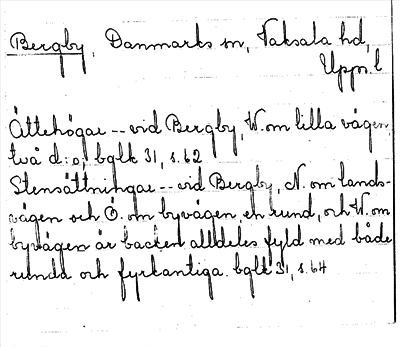 Bergby, Danmarks sn, Vaksala hd,
Upps. l
Ättehögar -- vid Bergby, W. om lilla vägen,
två d:o, bglk 31, s. 62
Stensättningar -- vid Bergby, N. om lands-
vägen och Ö. om byvägen, en rund, och W. om
byvägen är backen alldeles fyld med både
runda och fyrkantiga. bglk 31, s. 64